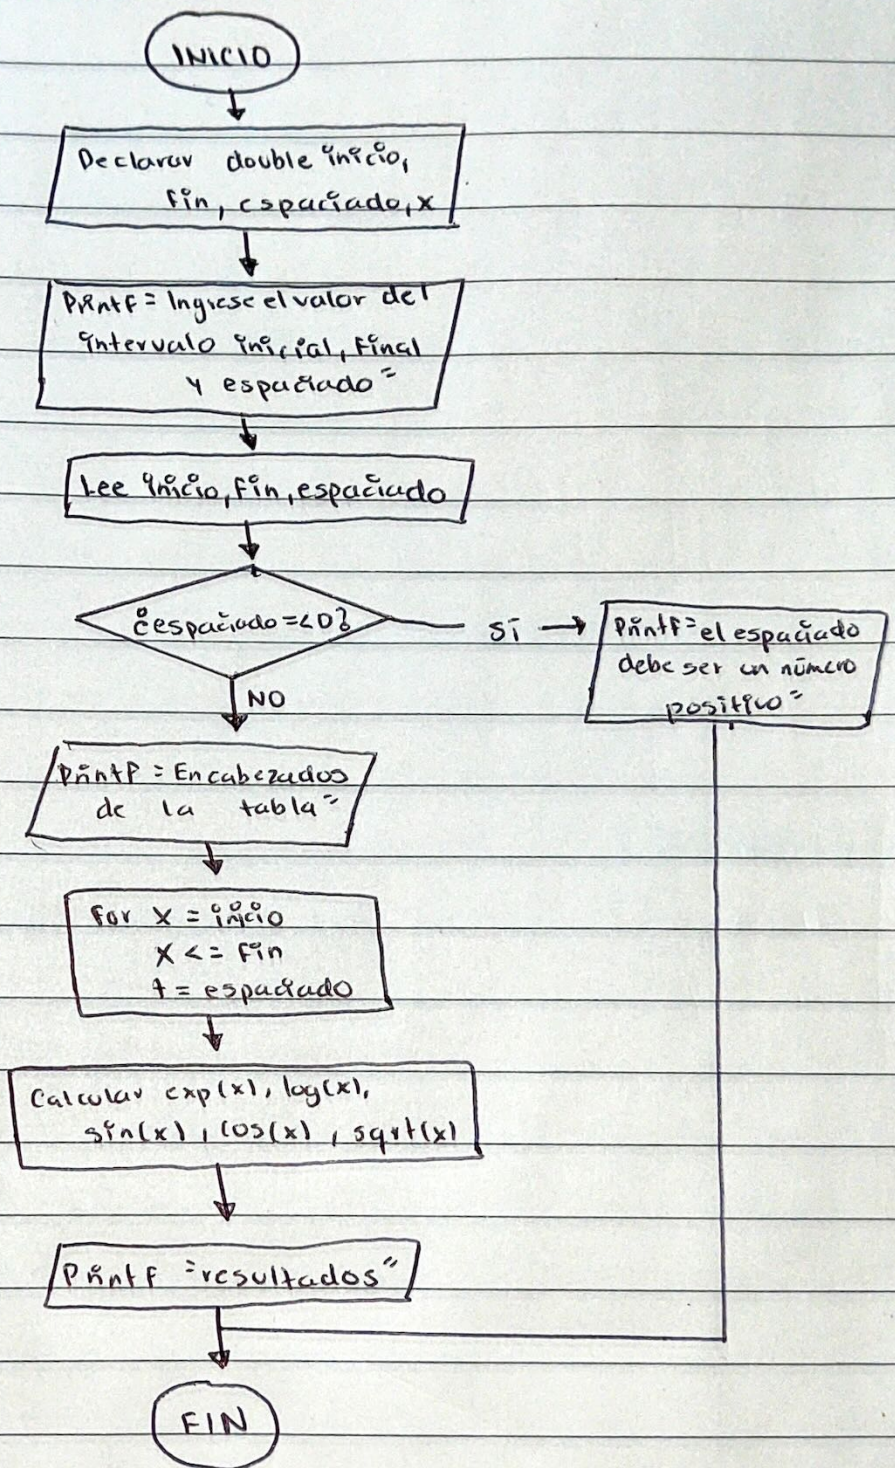 INICIO
Declarar double inicio,
fin, espaciado, x
Printf = Ingrese el valor del
intervalo inicial, final
y espaciado"
Lee inicio, fin, espaciado
¿espaciado=<0?
SI
Printf "el espaciado
debe ser un número
positivo"
NO
Printf = Encabezados
de la tabla"
For x = inicio
x <= fin
+= espaciado
Calcular exp(x), log(x),
sin(x), cos(x), sqrt(x)
Printf "resultados"
FIN